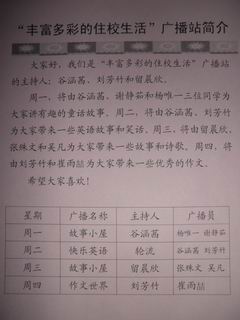 “丰富多彩的住校生活”广播站简介
大家好，我们是“丰富多彩的住校生活”广播站
的主持人：谷涵茜、刘芳竹和留晨欣。
周一，将由谷涵茜、谢静茹和杨唯一三位同学为
大家讲有趣的童话故事。周二，将由谷涵茜、刘芳竹
为大家带来一些英语故事和笑话。周三，将由留晨欣、
张姝文和吴凡为大家带来一些故事和诗歌。周四，将
由刘芳竹和崔雨喆为大家带来一些优秀的作文。
希望大家喜欢！
星期 广播名称 主持人 广播员
周一 故事小屋 谷涵茜 杨唯一 谢静茹
周二 快乐英语 轮流 谷涵茜 刘芳竹
周三 故事小屋 留晨欣 张姝文 吴凡
周四 作文世界 刘芳竹 崔雨喆